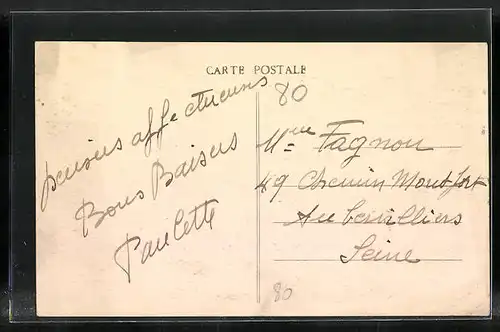 CARTE POSTALE
80
pensées affectueuses
Bons Baisers
Paulette
Mme Fagnon
49 Chemin Montfort
Aubervilliers
Seine
80